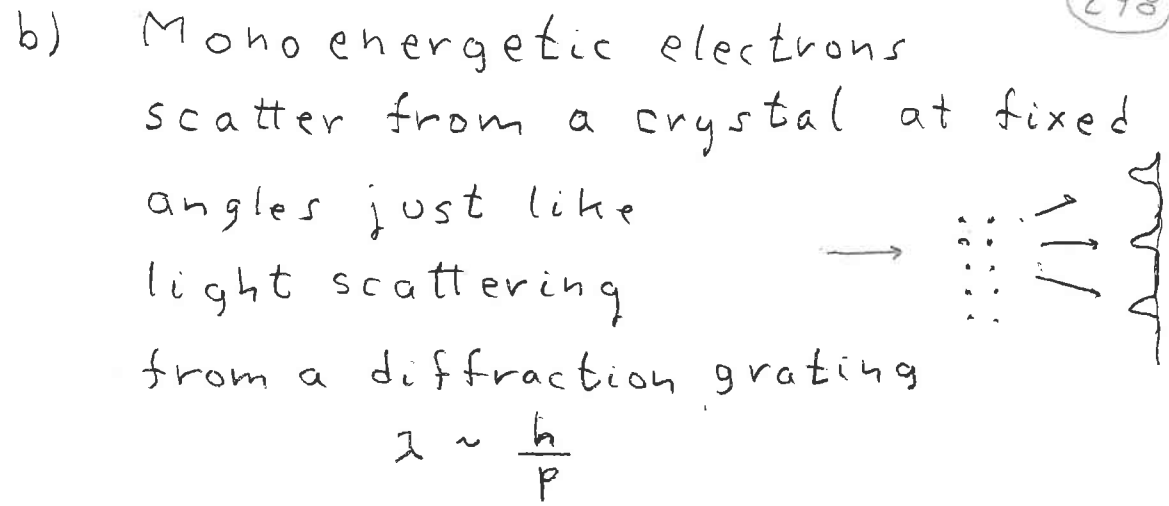 b) Monoenergetic electrons
scatter from a crystal at fixed
angles just like
light scattering
from a diffraction grating
λ ~ h/p